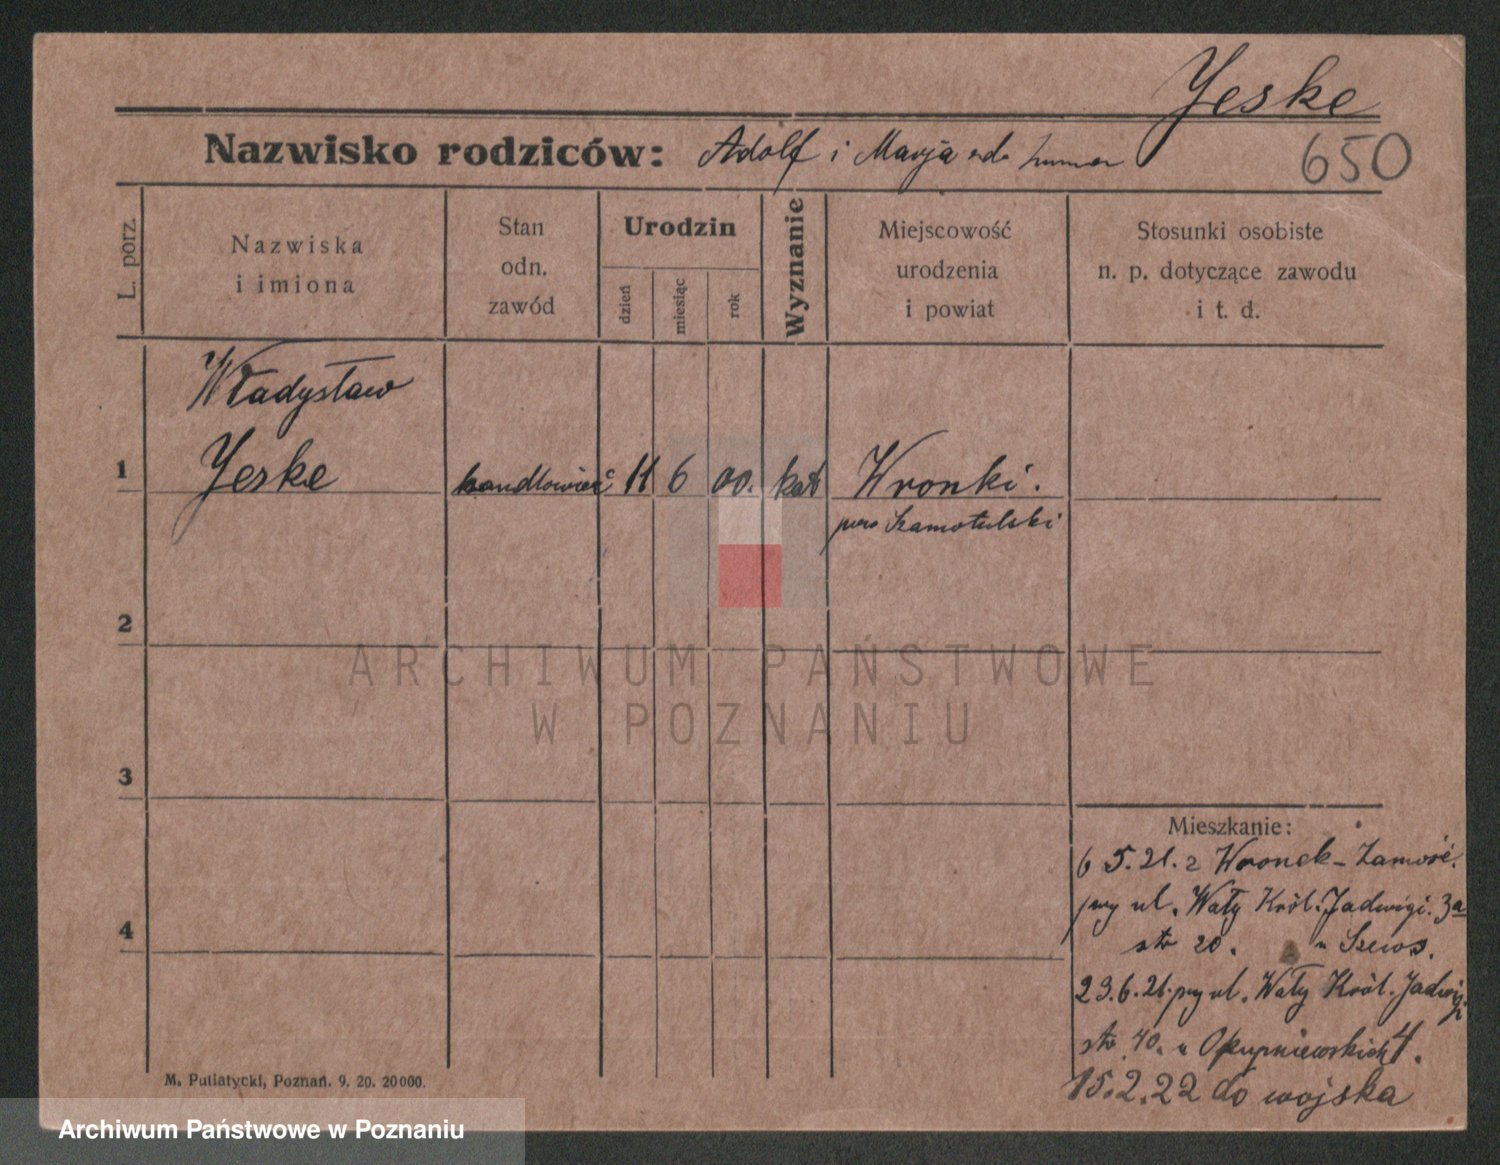 Yeske
650
Nazwisko rodziców: Adolf i Marja
L. porz.
Nazwiska i imiona
Stan odn. zawód
Urodzin
dzień
miesiąc
rok
Wyznanie
Miejscowość urodzenia i powiat
Stosunki osobiste n. p. dotyczące zawodu i t. d.
Władysław
1 Yeske handlowiec 11 6 00. kat Wronki.
pow Szamotulski
2
3
4
Mieszkanie:
6 5.21. z Wronek - Zamość.
przy ul. Wały Król. Jadwigi. 3a
str 20. u Szews.
23.6.21. przy ul. Wały Król. Jadwigi
str 40. u
15.2.22 do wojska
M. Putiatycki, Poznań. 9. 20. 20000.
ARCHIWUM PAŃSTWOWE
W POZNANIU
Archiwum Państwowe w Poznaniu